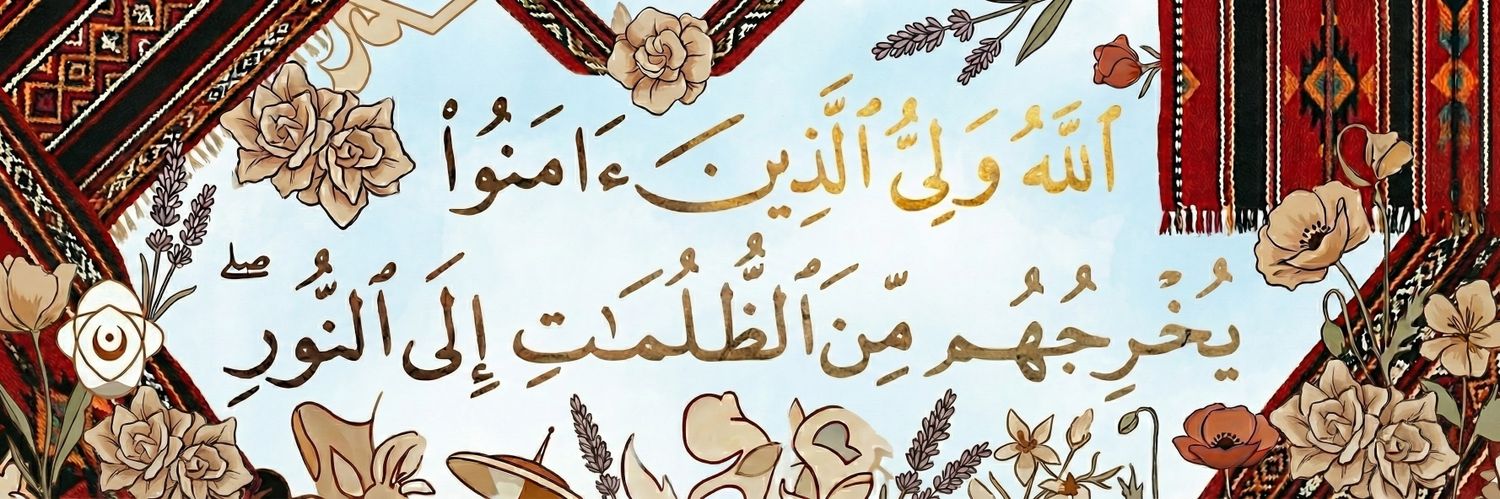 ٱللَّهُ وَلِىُّ ٱلَّذِينَ ءَامَنُوا۟
يُخْرِجُهُم مِّنَ ٱلظُّلُمَـٰتِ إِلَى ٱلنُّورِ ۖ